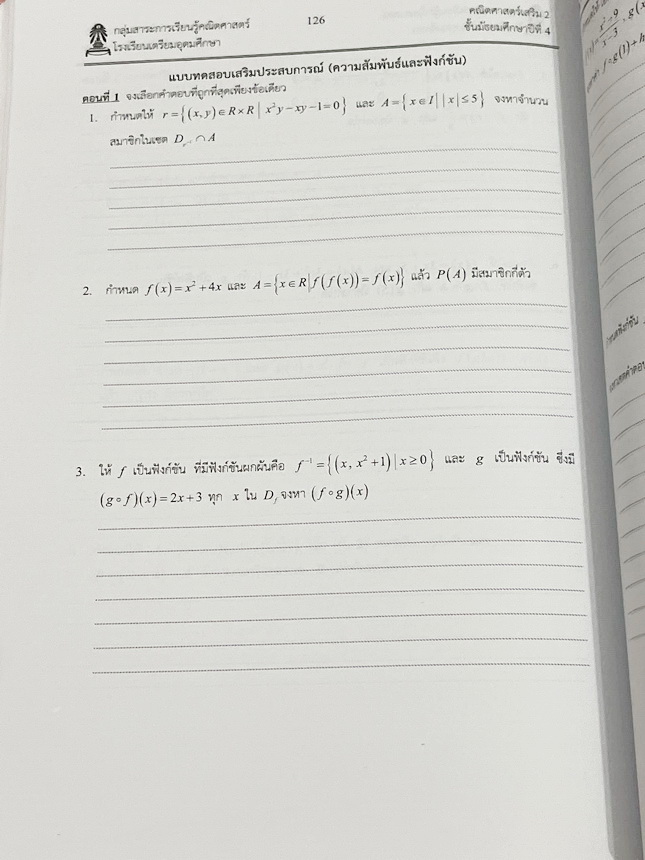 กลุ่มสาระการเรียนรู้คณิตศาสตร์
โรงเรียนเตรียมอุดมศึกษา
126
คณิตศาสตร์เสริม 2
ชั้นมัธยมศึกษาปีที่ 4
แบบทดสอบเสริมประสบการณ์ (ความสัมพันธ์และฟังก์ชัน)
ตอนที่ 1 จงเลือกคำตอบที่ถูกที่สุดเพียงข้อเดียว
1. กำหนดให้ r = {(x, y) ∈ R × R | x²y − xy − 1 = 0} และ A = {x ∈ I | |x| ≤ 5} จงหาจำนวน
สมาชิกในเซต D_{r⁻¹} ∩ A
2. กำหนด f(x) = x² + 4x และ A = {x ∈ R | f(f(x)) = f(x)} แล้ว P(A) มีสมาชิกกี่ตัว
3. ให้ f เป็นฟังก์ชัน ที่มีฟังก์ชันผกผันคือ f⁻¹ = {(x, x² + 1) | x ≥ 0} และ g เป็นฟังก์ชัน ซึ่งมี
(g ∘ f)(x) = 2x + 3 ทุก x ใน D_f จงหา (f ∘ g)(x)
x² − 9
x − 3
, g(x
f ∘ g(1) + h